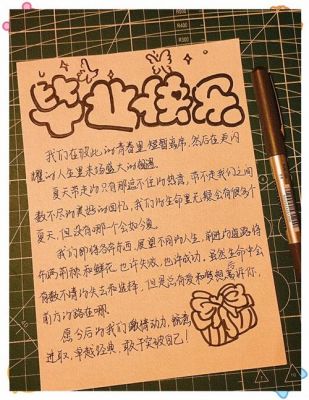 毕业快乐
我们在彼此的青春里短暂离席，然后在更闪
耀的人生里来场盛大的相遇。
夏天带走的只有那遮不住的热意，带不走我们之间
数不尽的美好的回忆，我们的生命里无疑会有很多个
夏天，但没有哪一个如今夏。
我们即将各奔东西，展望不同的人生，前进的道路将
布满荆棘和鲜花，也许失败，也许成功，虽然生命中会
有数不清的失去和选择，但是总有爱和梦想
前方的路在哪。
愿今后的我们激情动力，锐意
进取，卓越经典，敢于突破自己！